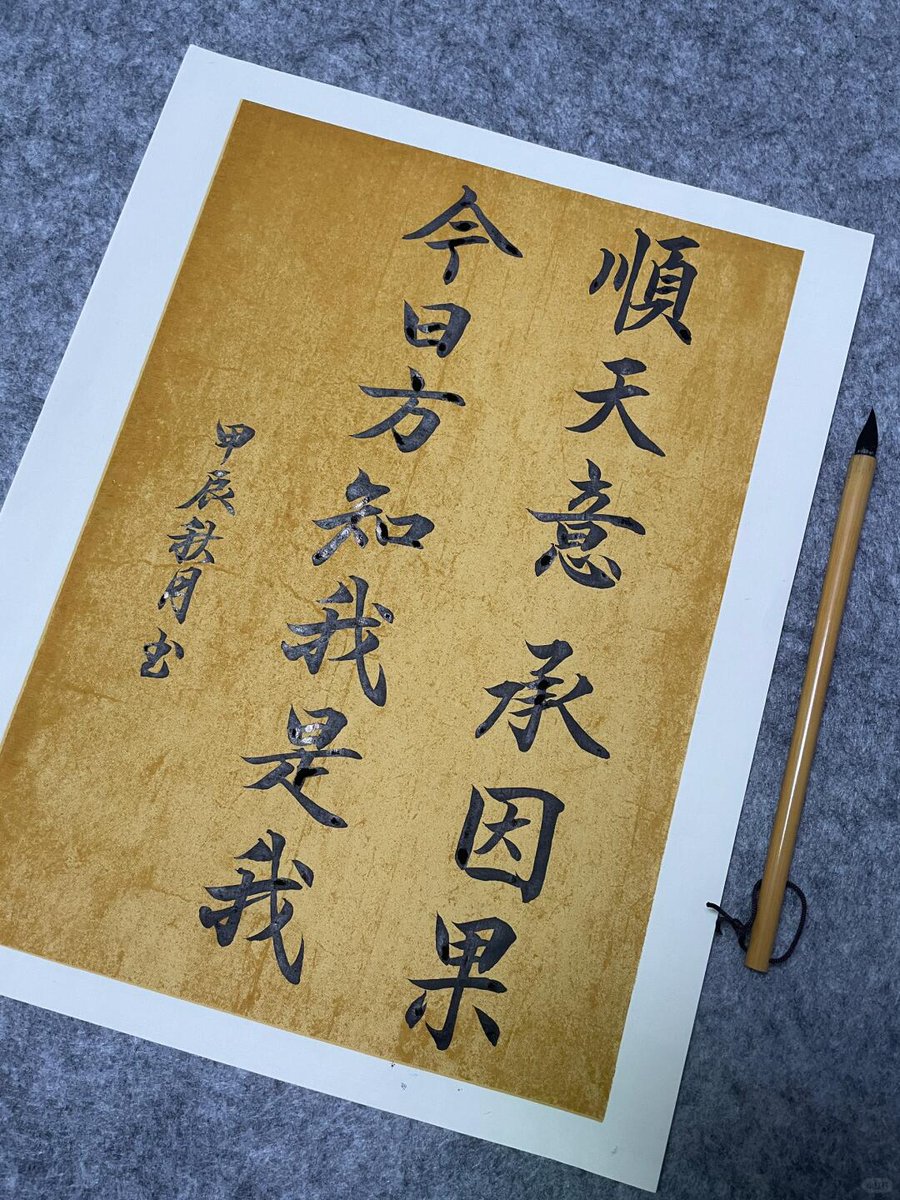 順天意 承因果
今日方知我是我
甲辰秋月书